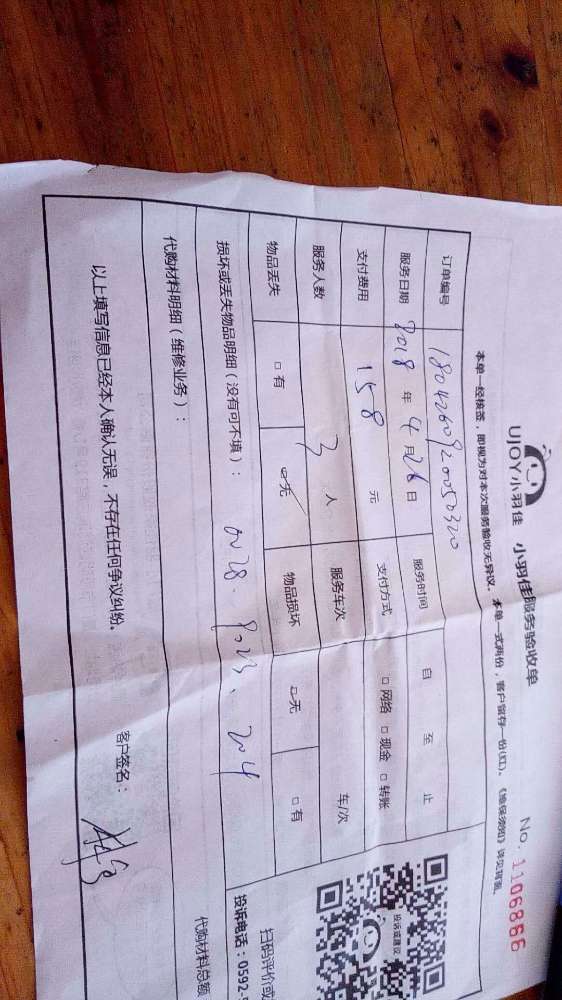 UJOY小羽佳 小羽佳服务验收单
No. 1106886
本单一经核签，即视为对本次服务验收无异议。本单一式两份，客户留存一份(红)。《维保须知》详见背面。
订单编号 1804260920050320 服务时间 自 至 止
服务日期 2018 年 4 月 26 日 支付方式 □ 网络 □ 现金 □ 转账
支付费用 158 元
服务人数 3 人 服务车次 车/次
物品丢失 □ 有 ☑ 无 物品损坏 ☑ 无 □ 有
损坏或丢失物品明细（没有可不填）：
代购材料明细（维修业务）：
代购材料总额
以上填写信息已经本人确认无误，不存在任何争议纠纷。
客户签名：
投诉或建议
扫码评价或
投诉电话：0592-5